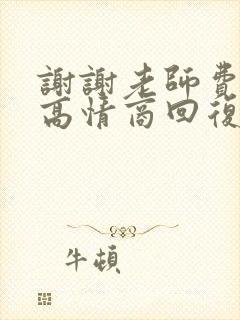 謝謝老師費
高情商回復
牛頓